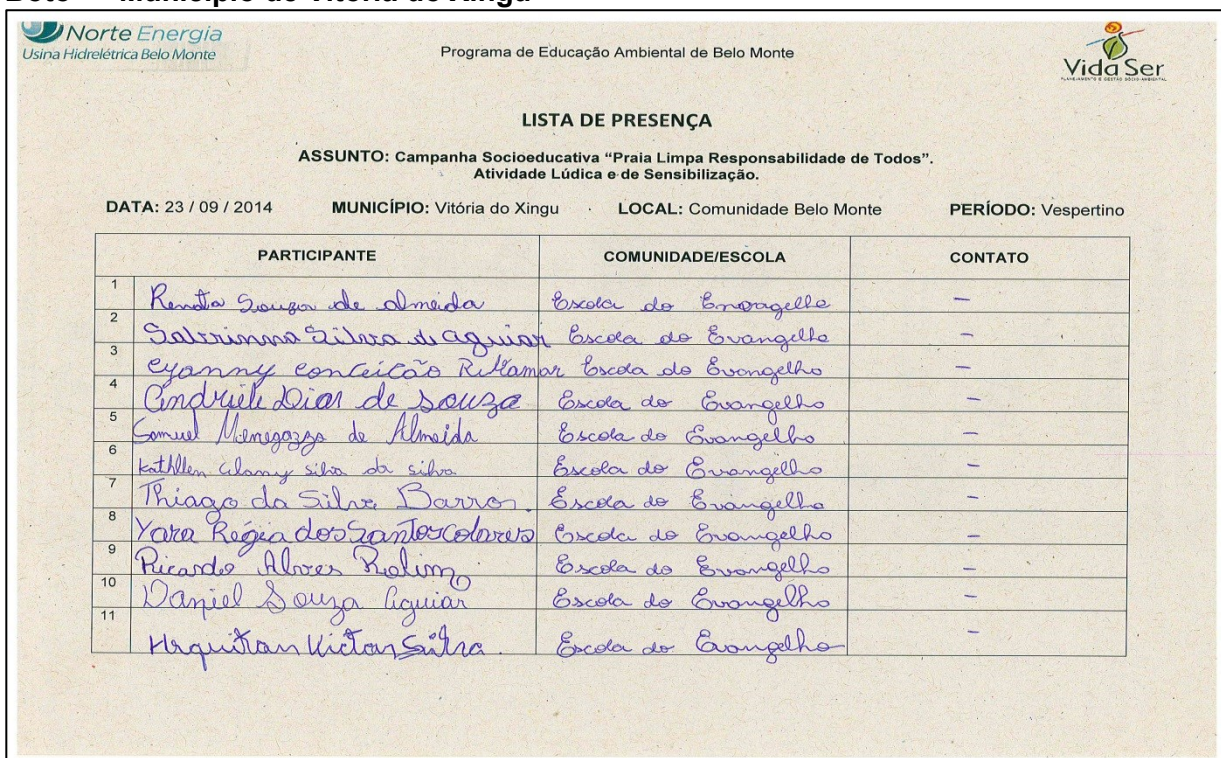 Município de Vitória do Xingu
Norte Energia
Usina Hidrelétrica Belo Monte
Programa de Educação Ambiental de Belo Monte
Vida Ser
PLANEJAMENTO E GESTÃO SÓCIO-AMBIENTAL
LISTA DE PRESENÇA
ASSUNTO: Campanha Socioeducativa “Praia Limpa Responsabilidade de Todos”.
Atividade Lúdica e de Sensibilização.
DATA: 23 / 09 / 2014 MUNICÍPIO: Vitória do Xingu LOCAL: Comunidade Belo Monte PERÍODO: Vespertino
PARTICIPANTE COMUNIDADE/ESCOLA CONTATO
1 Renata Souza de Almeida Escola do Evangelho –
2 Sabrinna Silva de Aguiar Escola do Evangelho –
3 Eyanny Conceicão Escola do Evangelho –
4 Andriele Dias de Souza Escola do Evangelho –
5 Samuel Menegazzo de Almeida Escola do Evangelho –
6 Kathllen silva da silva Escola do Evangelho –
7 Thiago da Silva Barros Escola do Evangelho –
8 Yara Régia dos Santos Colares Escola do Evangelho –
9 Ricardo Alves Rolim Escola do Evangelho –
10 Daniel Souza Aguiar Escola do Evangelho –
11 Victor Silva Escola do Evangelho –